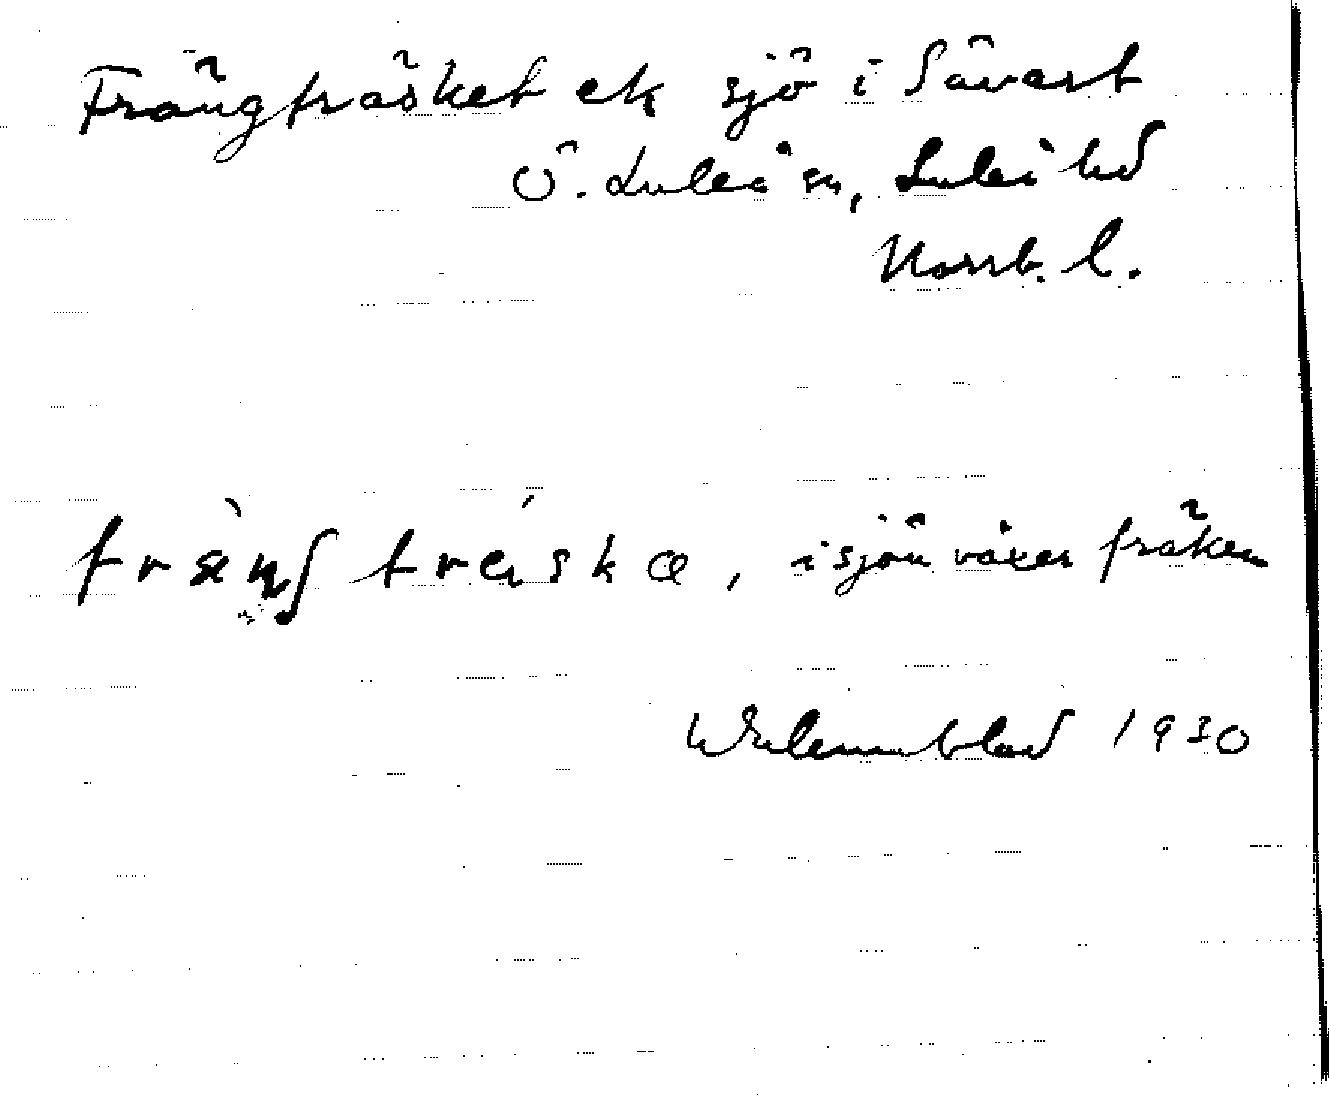 Frängträsket ek sjö i Sävast
Ö. Luleå sn, Luleå hd
Norrb. l.
fræ̀ŋʃ tréskæ, i sjön växer fräken
Wilenblad 1930